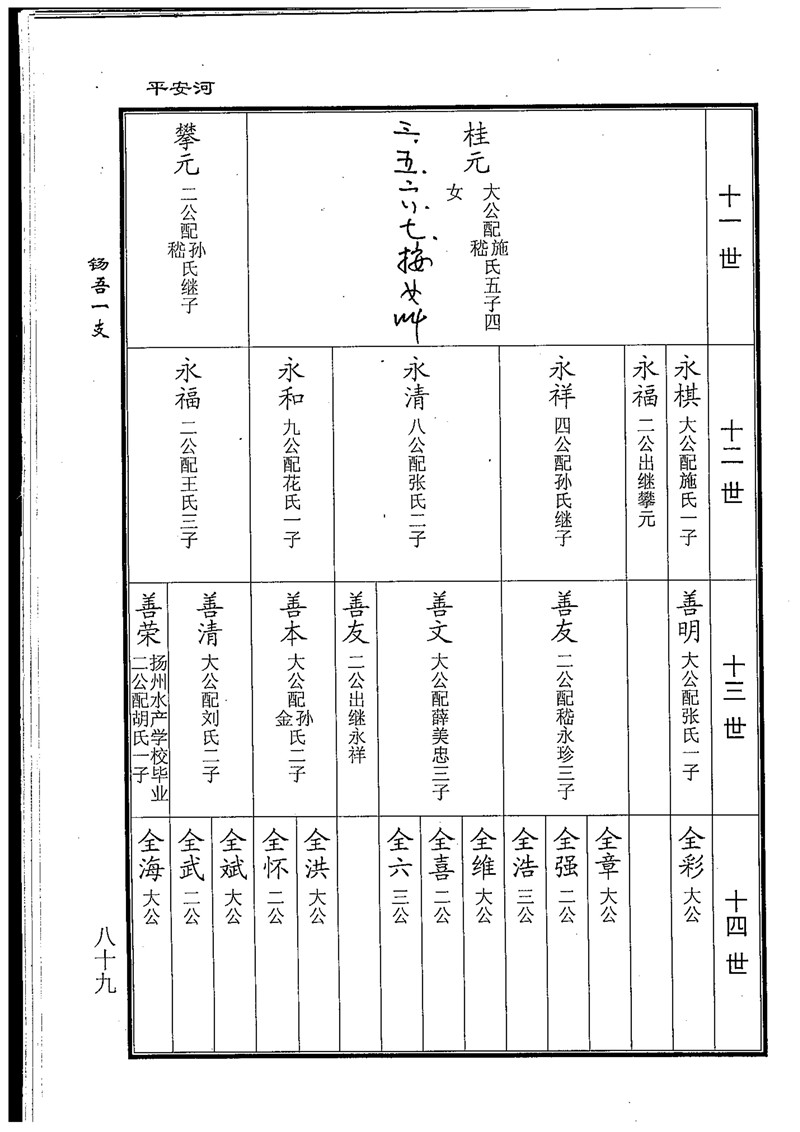 平安河
十一世
桂元
大公配施嵇氏五子四女
三、五、六、七、
女
攀元
二公配孙嵇氏继子
十二世
永棋 大公配施氏一子
永福 二公出继攀元
永祥 四公配孙氏继子
永清 八公配张氏二子
永和 九公配花氏一子
永福 二公配王氏三子
十三世
善明 大公配张氏一子
善友 二公配嵇永珍三子
善文 大公配薛美忠三子
善友 二公出继永祥
善本 大公配孙金氏二子
善清 大公配刘氏二子
善荣 扬州水产学校毕业
二公配胡氏一子
十四世
全彩 大公
全章 大公
全强 二公
全浩 三公
全维 大公
全喜 二公
全六 三公
全洪 大公
全怀 二公
全斌 大公
全武 二公
全海 大公
钖吾一支
八十九